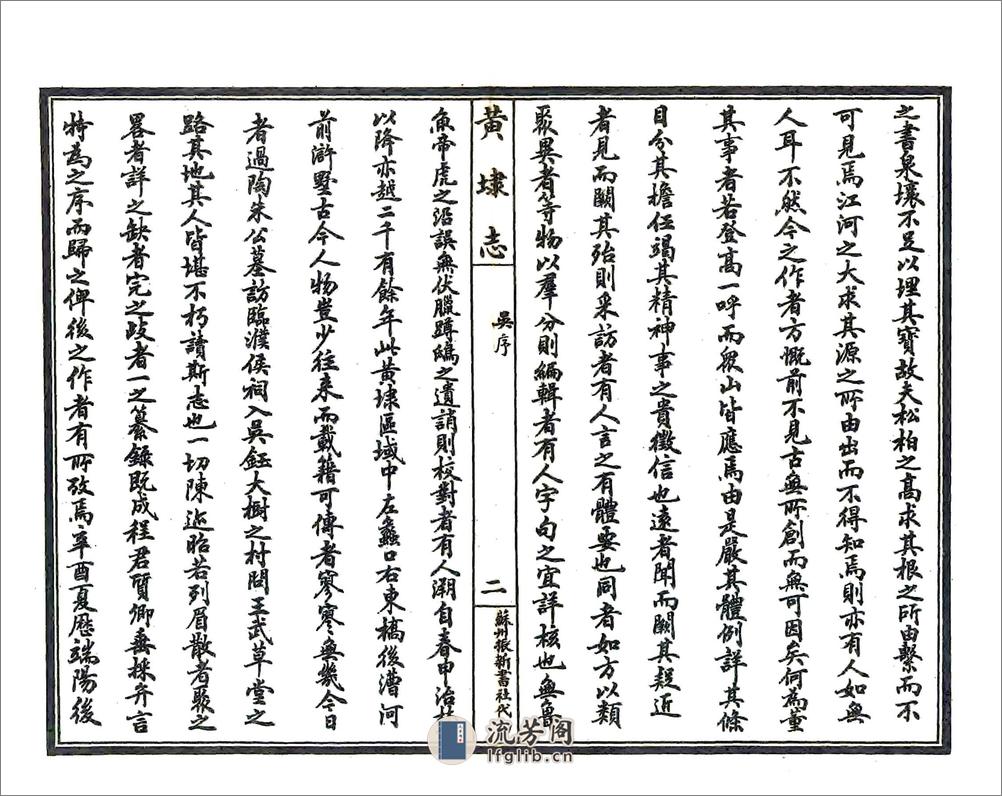 之書泉壤不足以埋其寶故夫松柏之高求其根之所由繫而不
可見焉江河之大求其源之所由出而不得知焉則亦有人如無
人耳不然今之作者方慨前不見古無所創而無可因矣何為董
其事者若登高一呼而眾山皆應焉由是嚴其體例詳其條
目分其擔任竭其精神事之貴徵信也遠者聞而闕其疑近
者見而闕其殆則采訪者有人言之有體要也同者如方以類
聚異者等物以羣分則編輯者有人字句之宜詳核也無魯
黃埭志
吳序
二
蘇州振新書社代
魚帝虎之沿誤無伏臘蹲鴟之遺誚則校對者有人溯自春申治
以降亦越二千有餘年此黃埭區域中左蠡口右東橋後漕河
前滸墅古今人物豈少往來而載籍可傳者寥寥無幾今日
者過陶朱公墓訪臨濮侯祠入吳鈺大樹之村問王武草堂之
路其地其人皆堪不朽讀斯志也一切陳迹昭若列眉散者聚之
畧者詳之缺者完之歧者一之纂錄既成程君質卿垂採弁言
特為之序而歸之俾後之作者有所攷焉辛酉夏歷端陽後
流芳阁
lfglib.cn